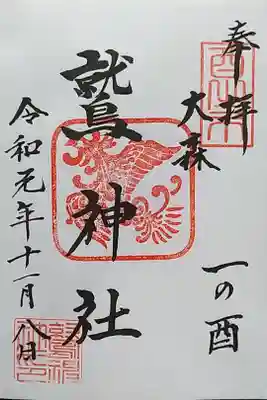 奉拝
大森
一の酉
鷲神社
令和元年十一月八日